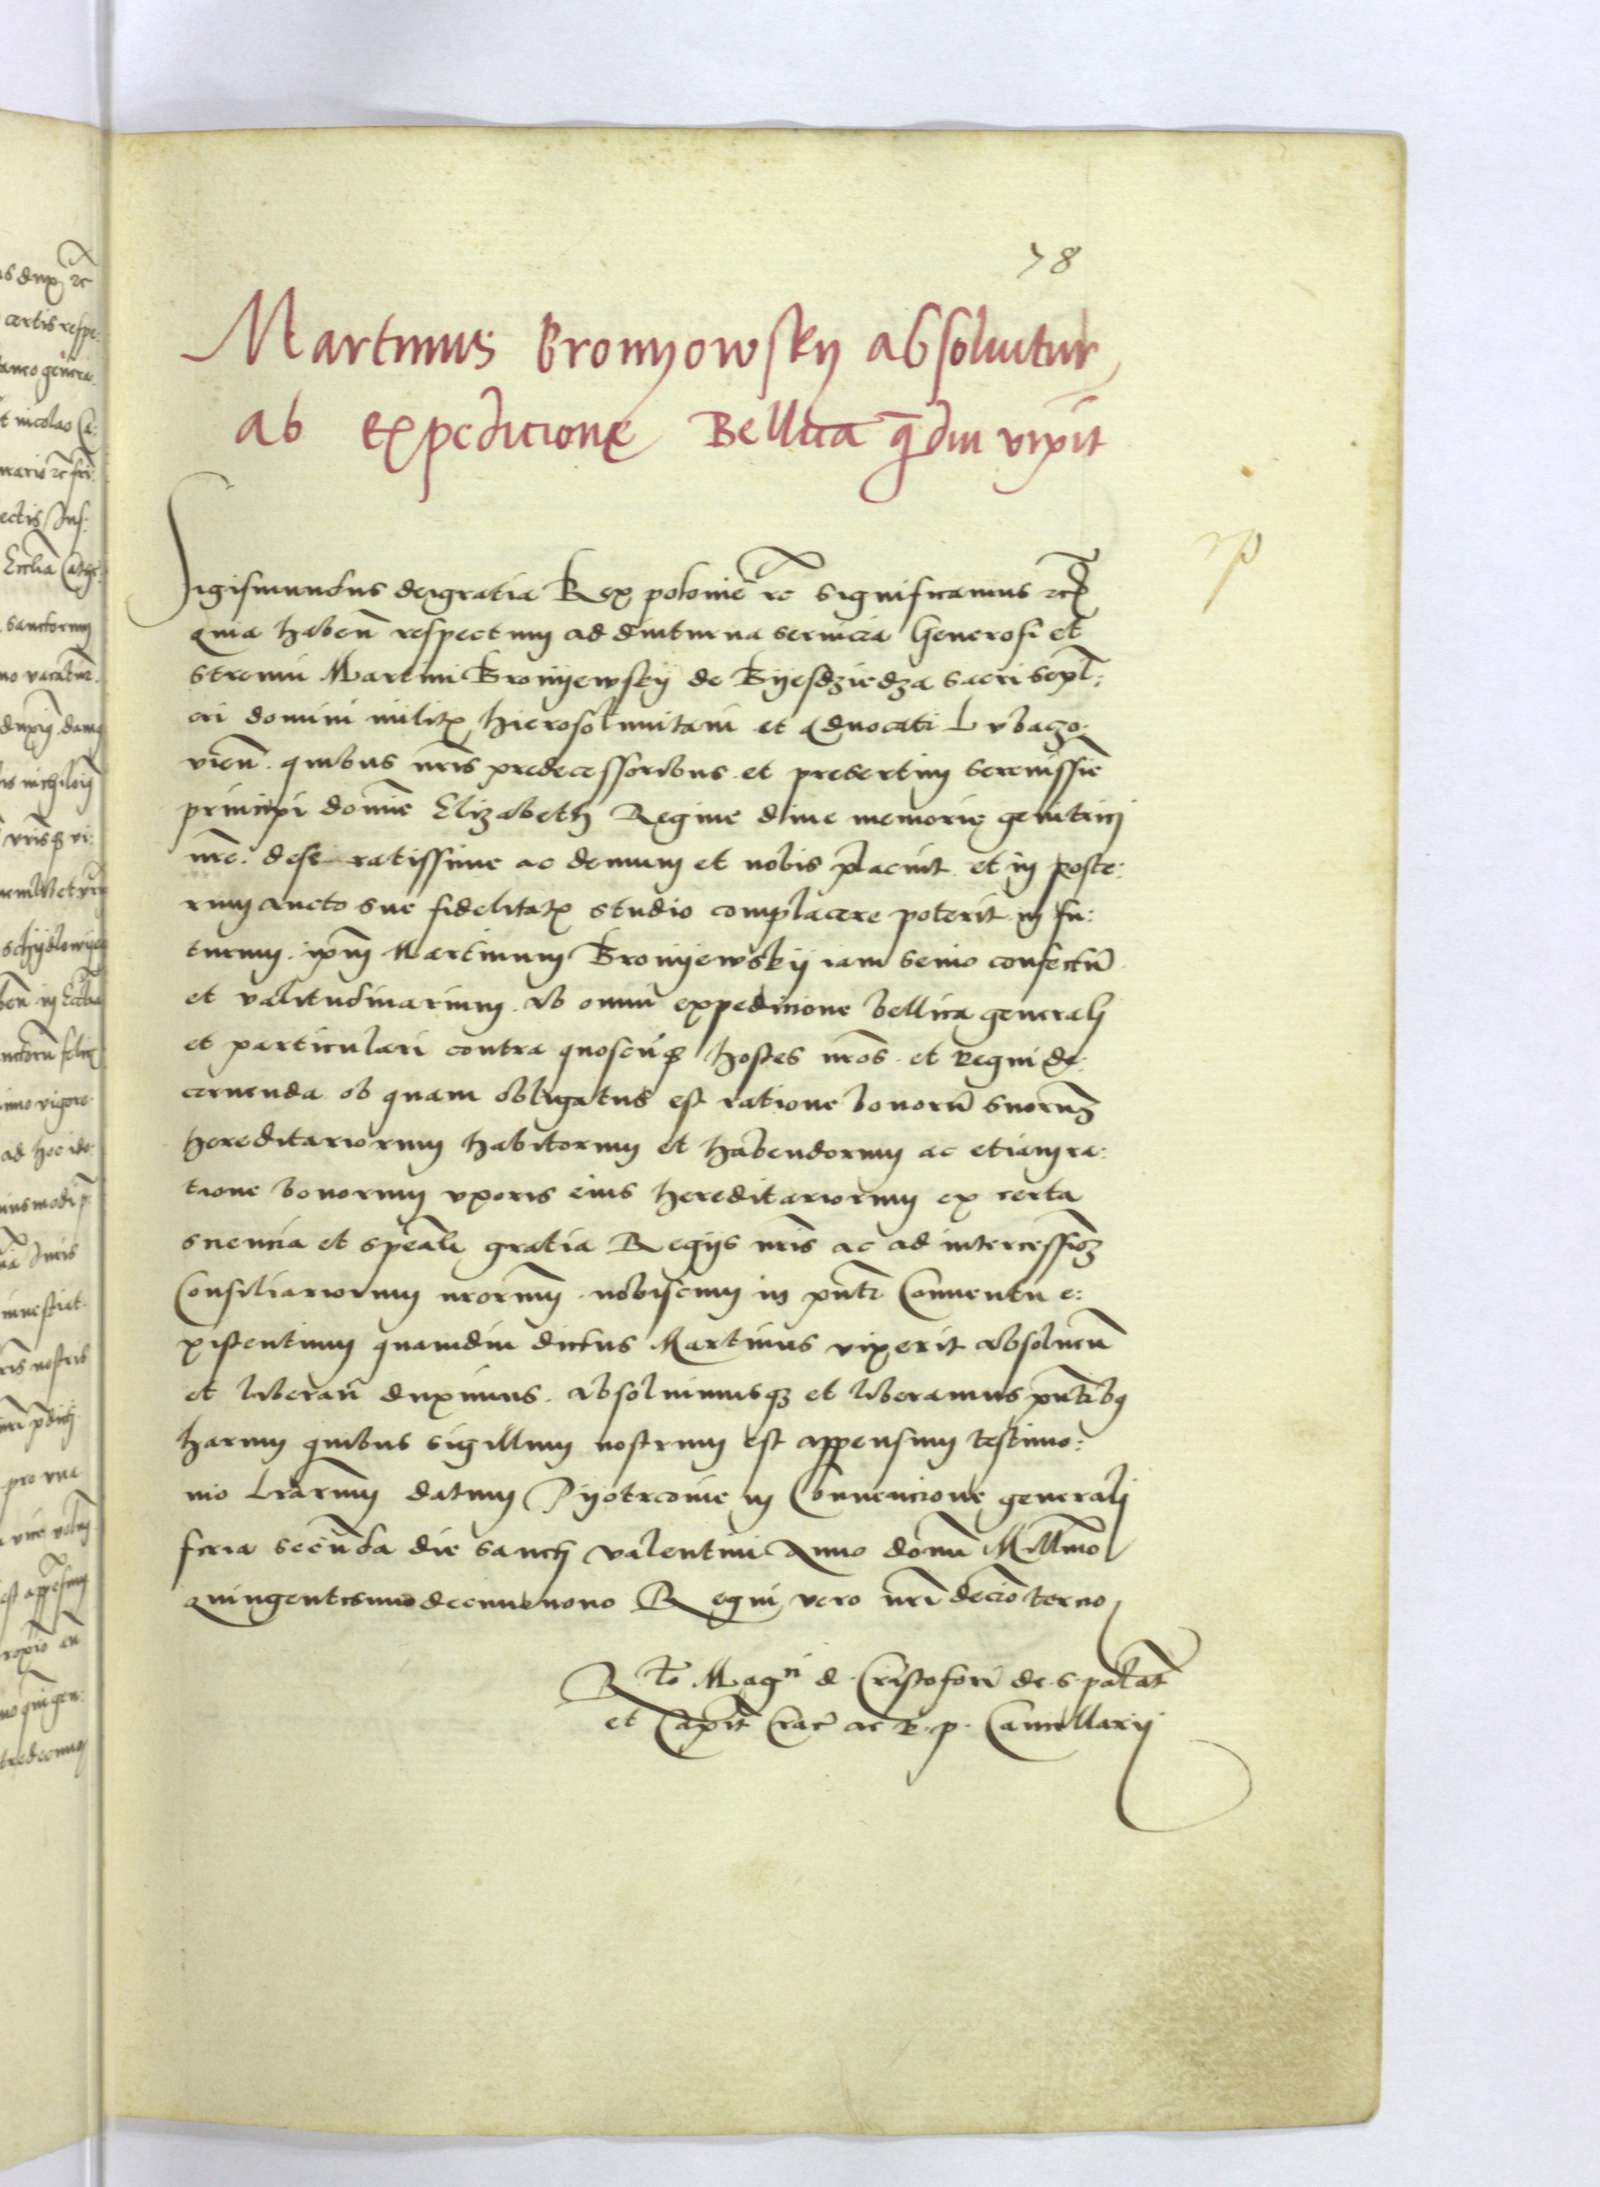 78
Martinus Bronyowsky absoluitur
ab expedicione Bellica q̄diu vixit
Sigismundus dei gratia Rex polonie rc significamus rc
Quia haben̄ respectum ad diuturna seruicia Generosi et
strenui Martini Bronyewsky de Byesdziedza sacri sepl:
cri domini militis hierosolimitani et aduocati Lubaczo:
vien̄ . quibus nr̄is predecessoribus . et presertim serenissīe
principi domīe Elizabeth Regine diue memorie genitrici
nr̄e . dese ratissime ac demum et nobis placuit . et in poste:
rum aucto sue fidelitatis studio complacere poterit in fu:
turum . ip̄m Martinum Bronyewsky iam senio confectū
et valitudinarium . ab omni expedicione bellica generali
et particulari contra quoscūq hostes nr̄os . et Regni de:
cernenda ob quam obligatus est ratione bonorū suorum
hereditariorum habitorum et habendorum ac etiam ra:
tione bonorum vxoris eius hereditariorum ex certa
sciencia et spēali gratia Regijs nr̄is ac ad intercessionem
Consiliariorum nrorum . nobiscum in pn̄ti Conuentu e:
xistentium quamdiu dictus Martinus vixerit absoluen̄
et liberan̄ duximus . absoluimusq et liberamus pn̄tibus
harum quibus sigillum nostrum est appensum testimo:
nio lrarum datum Pyotrcouie in Conuencione generali
feria secūnda die sancti valentini Anno domī Millīmo
quingentesimodecimonono Regni vero nr̄i decīo terno
Rto Magci d . Cristofori de . s . palat̄
et Capit̄ Crac̄ ac R . p . Cancellarij